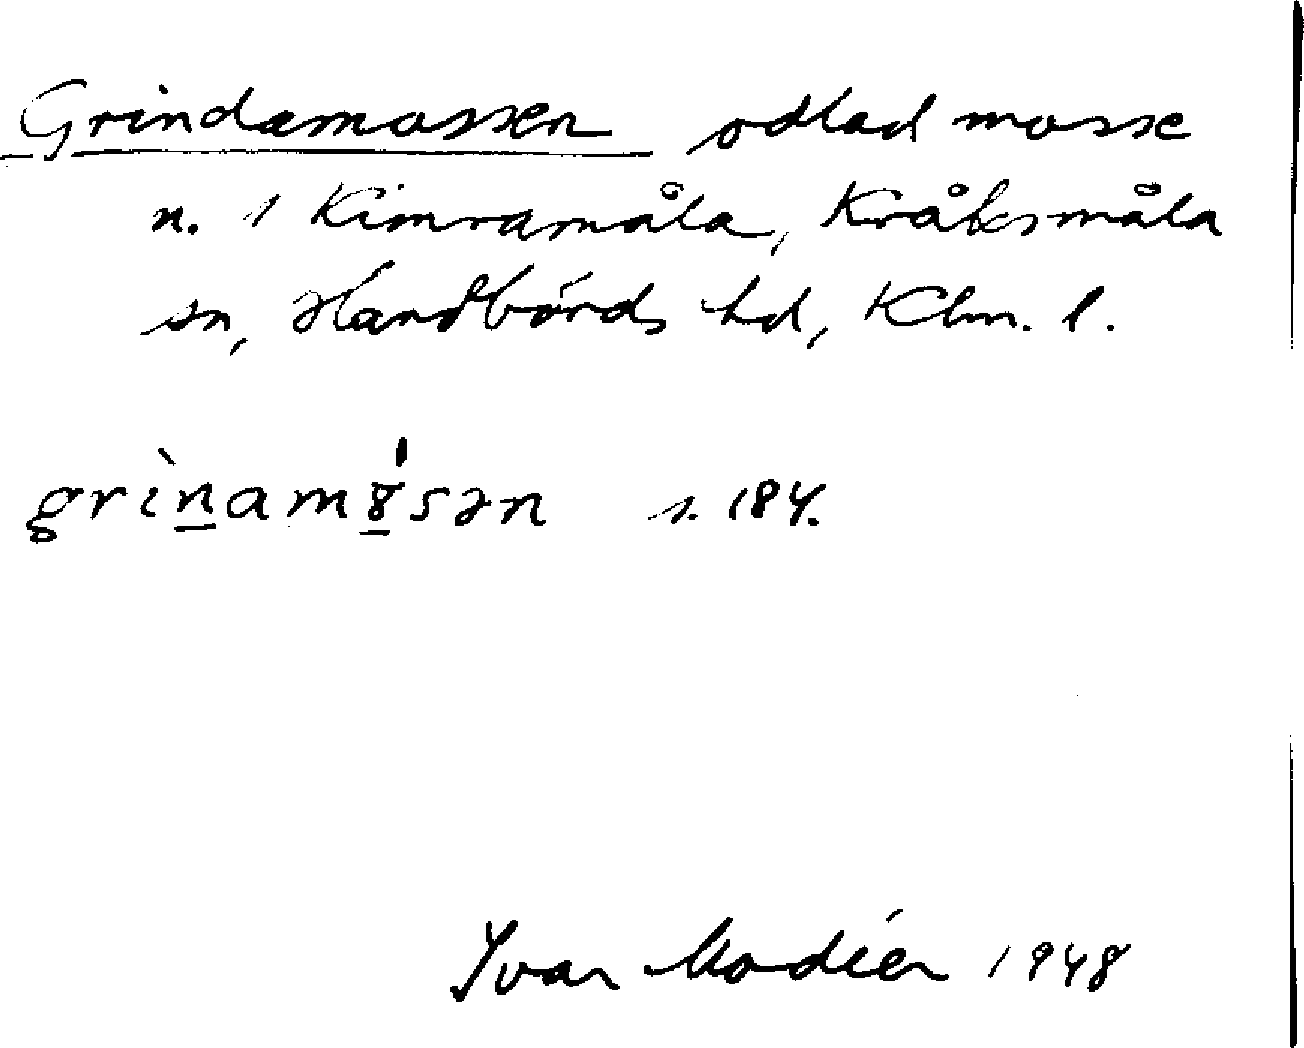 Grindamossen odlad mosse
n. 1 Kimramåla, Kråksmåla
sn, Handbörds hd, Klm. l.
grìn̲amɤ̲́sən s. 184.
Ivar Modéer 1948